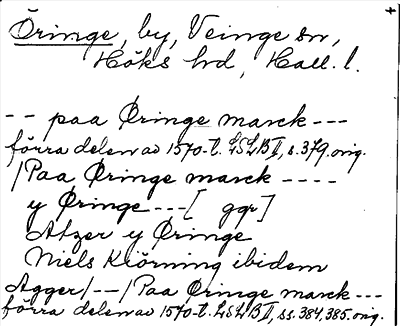 Öringe, by, Veinge sn,
Höks hd, Hall. l.
-- paa Øringe marck ---
förra delen av 1570-t. LSLB II, s. 379. orig.
/Paa Øringe marck ----
y Øringe ---[ ggr]
Atzer y Øringe
Niels Kiörning ibidem
Agger/--/Paa Øringe marck ---
förra delen av 1570-t. LSLB II, ss. 384, 385. orig.